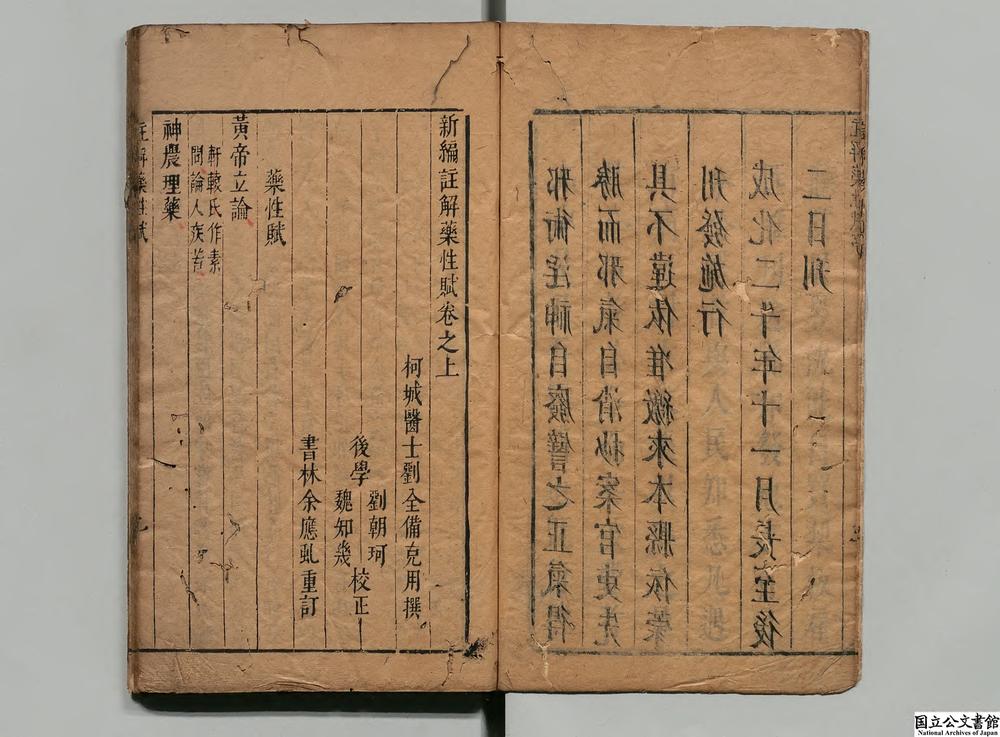 邪術淫神自廢譬之正氣得
勝而邪氣自消抄案官吏先
具不違依准繳來本縣依
刋發施行
成化二十年十一月長至後
二日刋
新編註解藥性賦卷之上
柯城醫士劉全備克用撰
後學
劉朝珂
魏知幾
校正
書林余應虬重訂
藥性賦
黃帝立論
軒轅氏作素
問論人疾苦
神農理藥
註解藥性賦
国立公文書館
National Archives of Japan